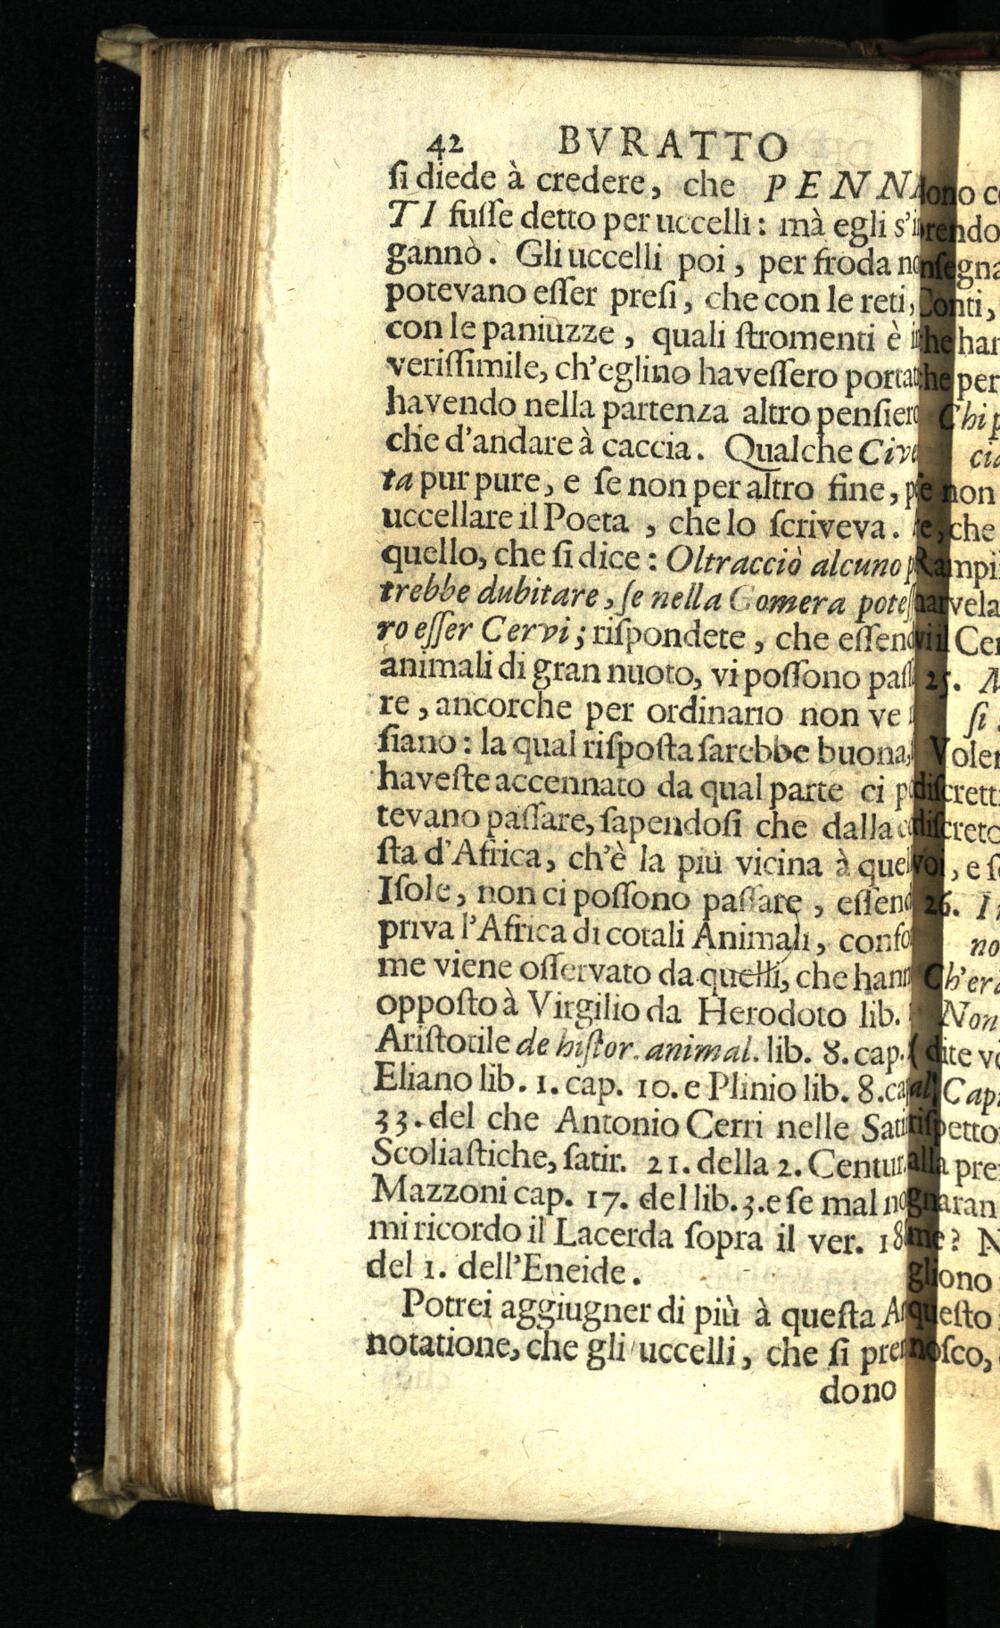 42 BVRATTO
si diede à credere, che PENNA
TI fusse detto per uccelli: mà egli s'in
gannò. Gli uccelli poi, per froda no
potevano esser presi, che con le reti,
con le paniuzze, quali stromenti è in
verissimile, ch'eglino havessero portat
havendo nella partenza altro pensiero
che d'andare à caccia. Qualche Cive
ta pur pure, e se non per altro fine, p
uccellare il Poeta, che lo scriveva.
quello, che si dice: Oltracciò alcuno p
trebbe dubitare, se nella Gomera potess
ro esser Cervi; rispondete, che essend
animali di gran nuoto, vi possono pass
re, ancorche per ordinario non ve
siano: la qual risposta sarebbe buona,
haveste accennato da qual parte ci p
tevano passare, sapendosi che dalla co
sta d'Africa, ch'è la più vicina à quel
Isole, non ci possono passare, essend
priva l'Africa di cotali Animali, confo
me viene osservato da quelli, che hann
opposto à Virgilio da Herodoto lib.
Aristotile de histor. animal. lib. 8. cap.
Eliano lib. 1. cap. 10. e Plinio lib. 8. ca
33. del che Antonio Cerri nelle Sati
Scoliastiche, satir. 21. della 2. Centur.
Mazzoni cap. 17. del lib. 3. e se mal no
mi ricordo il Lacerda sopra il ver. 18
del 1. dell'Eneide.
Potrei aggiugner di più à questa An
notatione, che gli uccelli, che si pren
dono
dono c
rendo
nsegna
Conti,
che han
che per
Chi p
cia
e non
e, che
Rampi
har vela
vi il Cer
25. M
si
Voler
discrett
discreto
voi, e s
26. I
no
Ch'era
Non
( dite vo
al Capi
rispetto
alla pre
gnaran
me? N
gliono
questo
nosco,